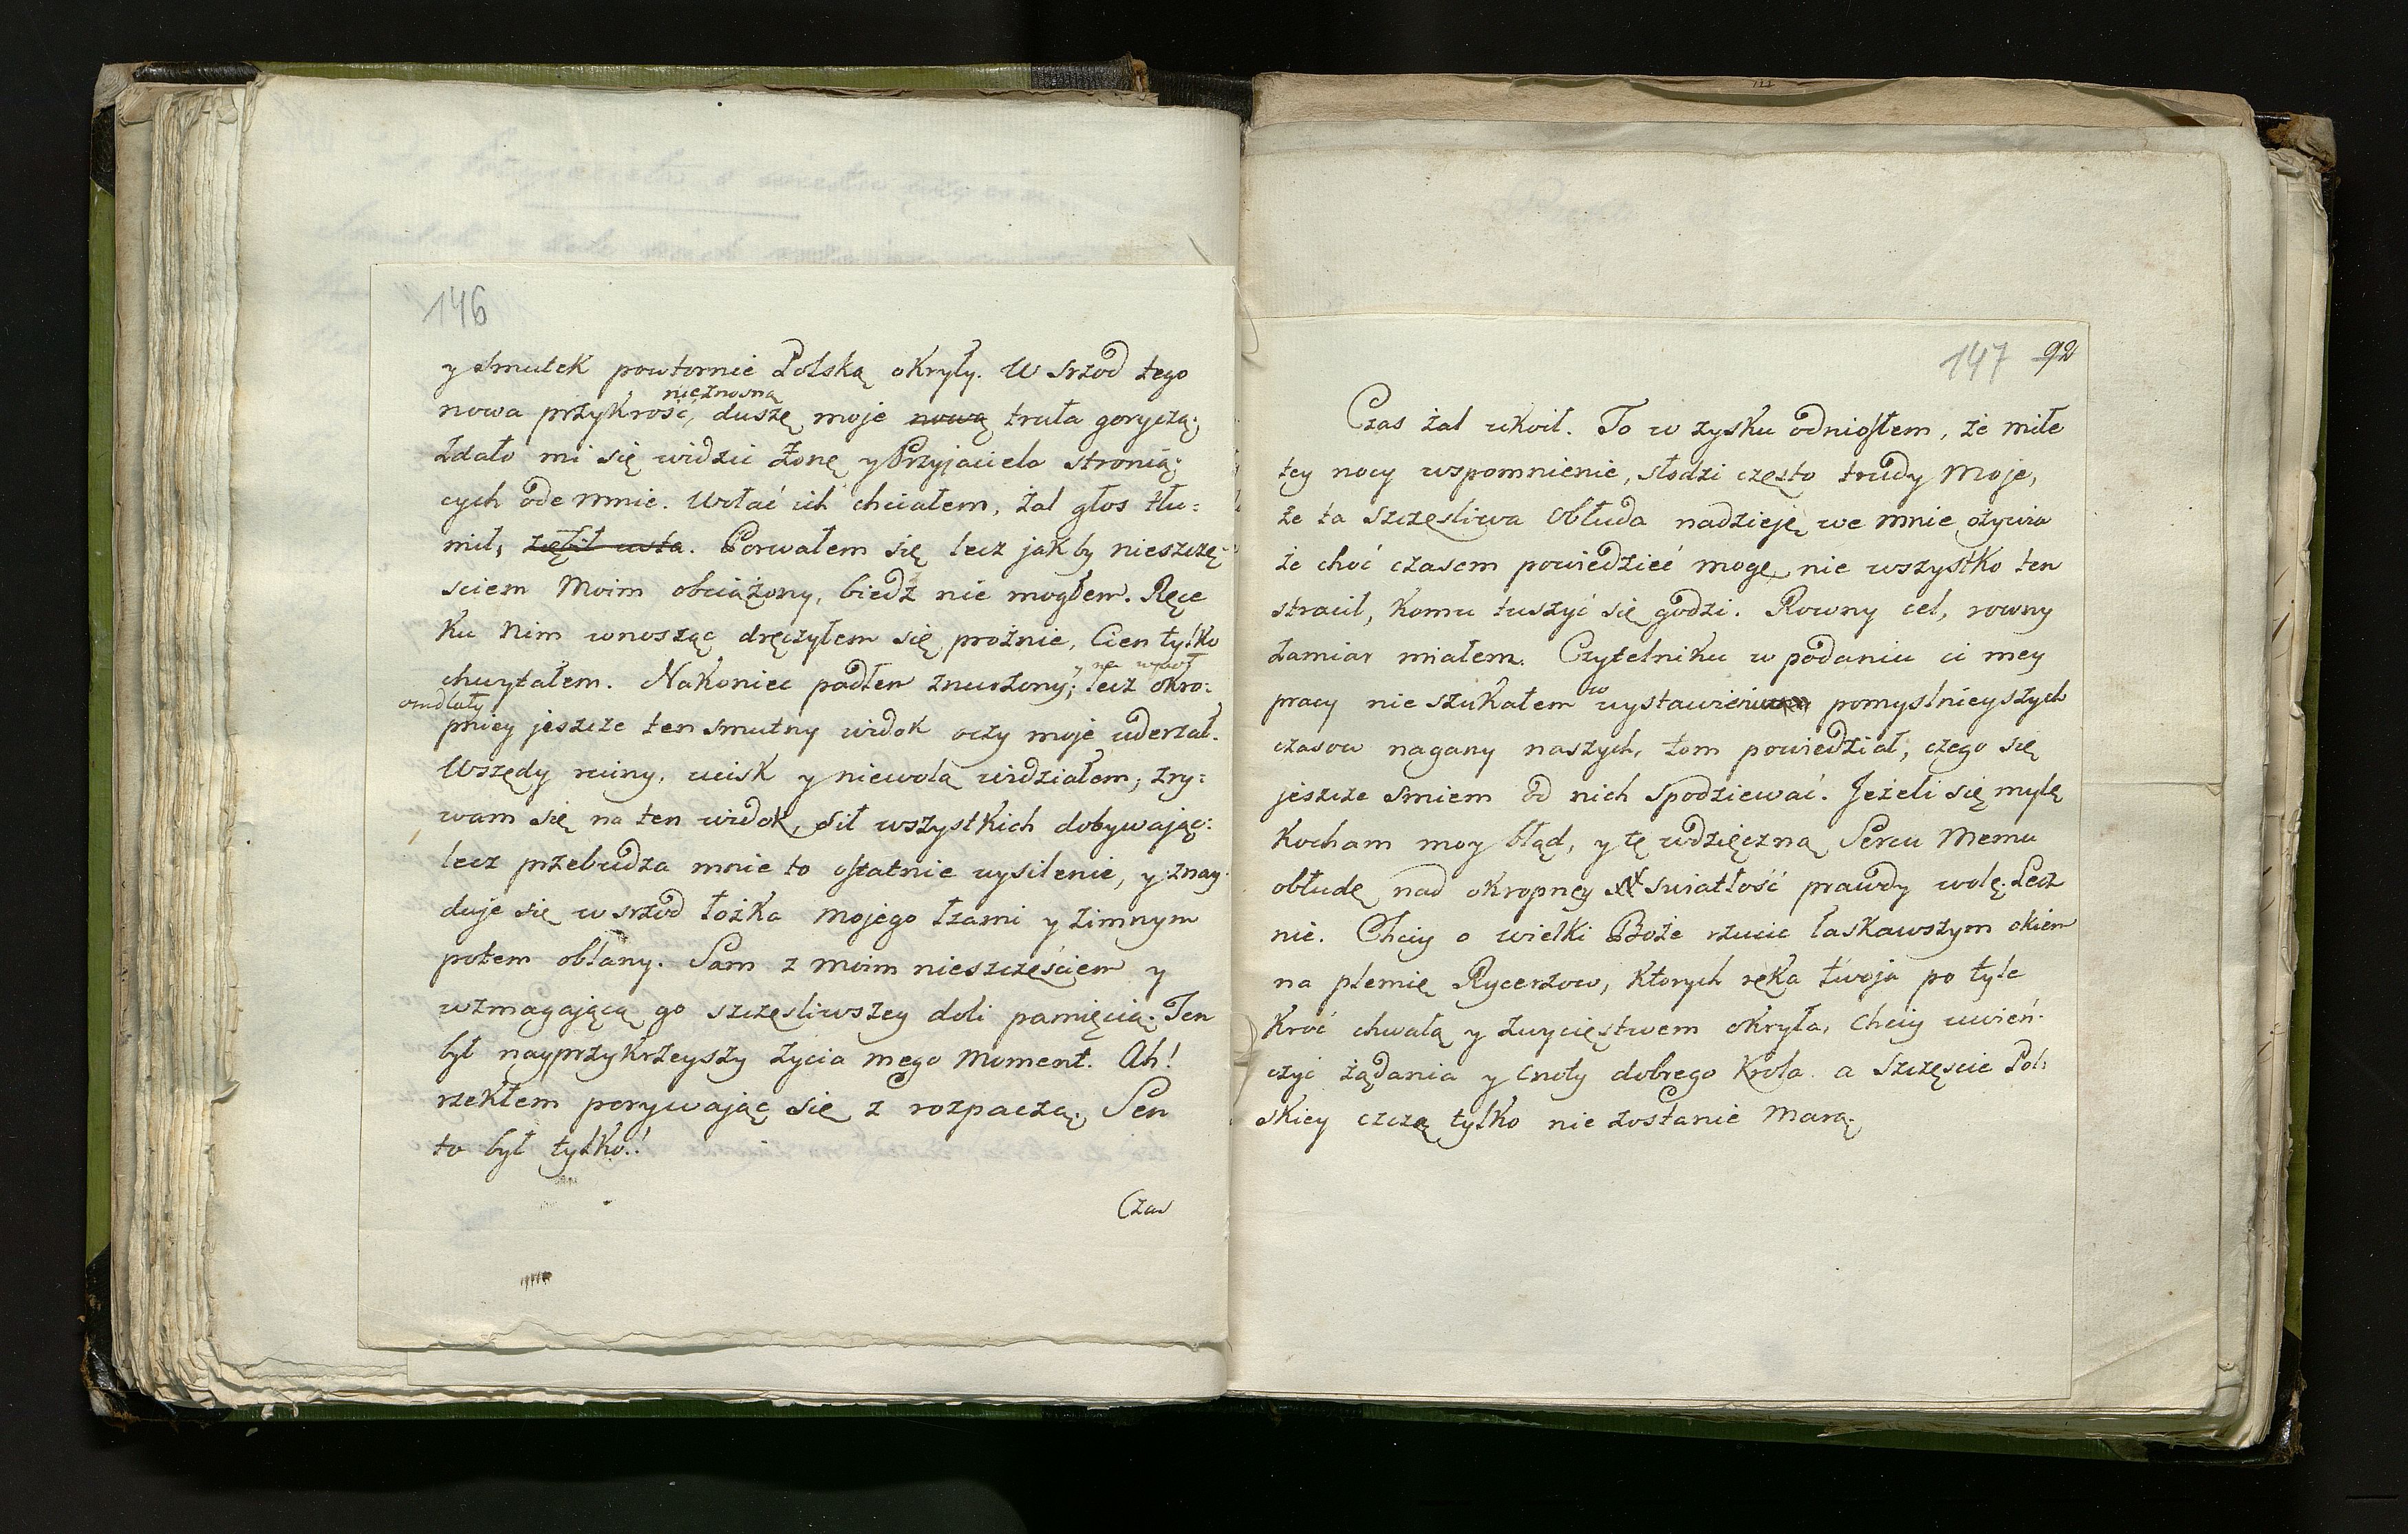 146
y smutek powtornie Polską okryły. W srzod tego
nieznosną
nowa przykrość, duszę moje nową truła goryczą;
Zdało mi się widzic Żonę y Przyjaciela stronią:
cych ode mnie. Wołać ich chciałem, żal głos tłu:
mił, ziębił usta. Porwałem się lecz jak by nieszczę:
sciem Moim obciążony, biedz nie mogłem. Ręce
Ku Nim wnosząc dręczyłem się proźnie, Cien tylko
y na wpoł
chwytałem. Nakoniec padłem znużony; lecz okro:
omdlały
pniey jeszcze ten smutny widok oczy moje uderzał.
Wszędy ruiny, ucisk y niewolą widziałem; zry:
wam się na ten widok, sił wszystkich dobywając:
lecz przebudza mnie to ostatnie wysilenie, y znay
duje się w srzod łożka mojego łzami y zimnym
potem oblany. Sam z moim nieszczęściem y
wzmagającą go szczęsliwszey doli pamięcią. Ten
był nayprzykrzeyszy życia mego Moment. Ah!
rzekłem porywając się z rozpaczą; Sen
to był tylko!
Czas
147 92
Czas żal ukoił. To w zysku odniosłem, że miłe
tey nocy wspomnienie, słodzi często trudy Moje,
że ta szczęsliwa Obłuda nadzieję we mnie ożywia
że choć czasem powiedzieć mogę, nie wszystko ten
stracił, komu tuszyć się godzi. Rowny cel, rowny
Zamiar miałem. Czytelniku w podaniu ci mey
w
pracy nie szukałem wystawieniu pomyslnieyszych
czasow nagany naszych, tom powiedział, czego się
jeszcze smiem od nich spodziewać. Jeżeli się mylę
Kocham moy błąd, y tę wdzięczną Sercu Memu
obłudę nad okropney światłość prawdy wolę. Lecz
nie. Chciy o wielki Boże rzucić łaskawszym okiem
na plemię Rycerzow, Ktorych ręka twoja po tyle
Kroć chwałą y zwycięstwem okryła, Chciy uwień:
czyć żądania y cnoty dobrego Krola. a Szczęscie Pol:
skiey czczą tylko nie zostanie Marą.